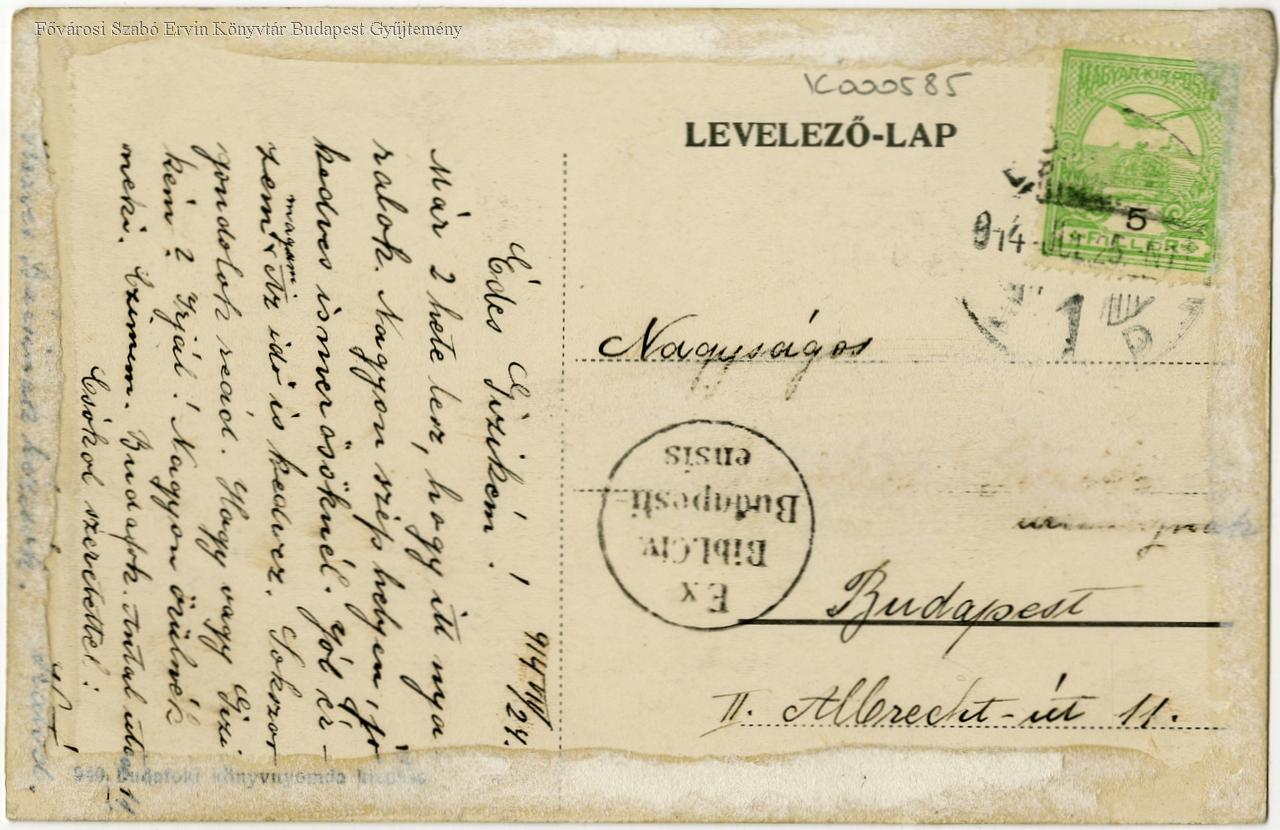 Fővárosi Szabó Ervin Könyvtár Budapest Gyűjtemény
K000585
LEVELEZŐ-LAP
MAGYAR KIR. POSTA
5
914 JUL 25
1
D
Nagyságos
Budapest
II. Albrecht-út 11.
Ex
Bibl. Civ.
Budapesti-
ensis
914 VII/24.
Édes Gizikém!
Már 2 hete lesz, hogy itt nya
ralok. Nagyon szép helyen, jó
kedves ismerősöknél. Jól ér-
zem magam. Az idő is kedvez. Sokszor
gondolok reád. Hogy vagy Gizi
kém? Irjál! Nagyon örülnék
neki. Czimem. Budafok. Antal utca 11
Csókol szeretettel:
919 Budafoki könyvnyomda kiadása